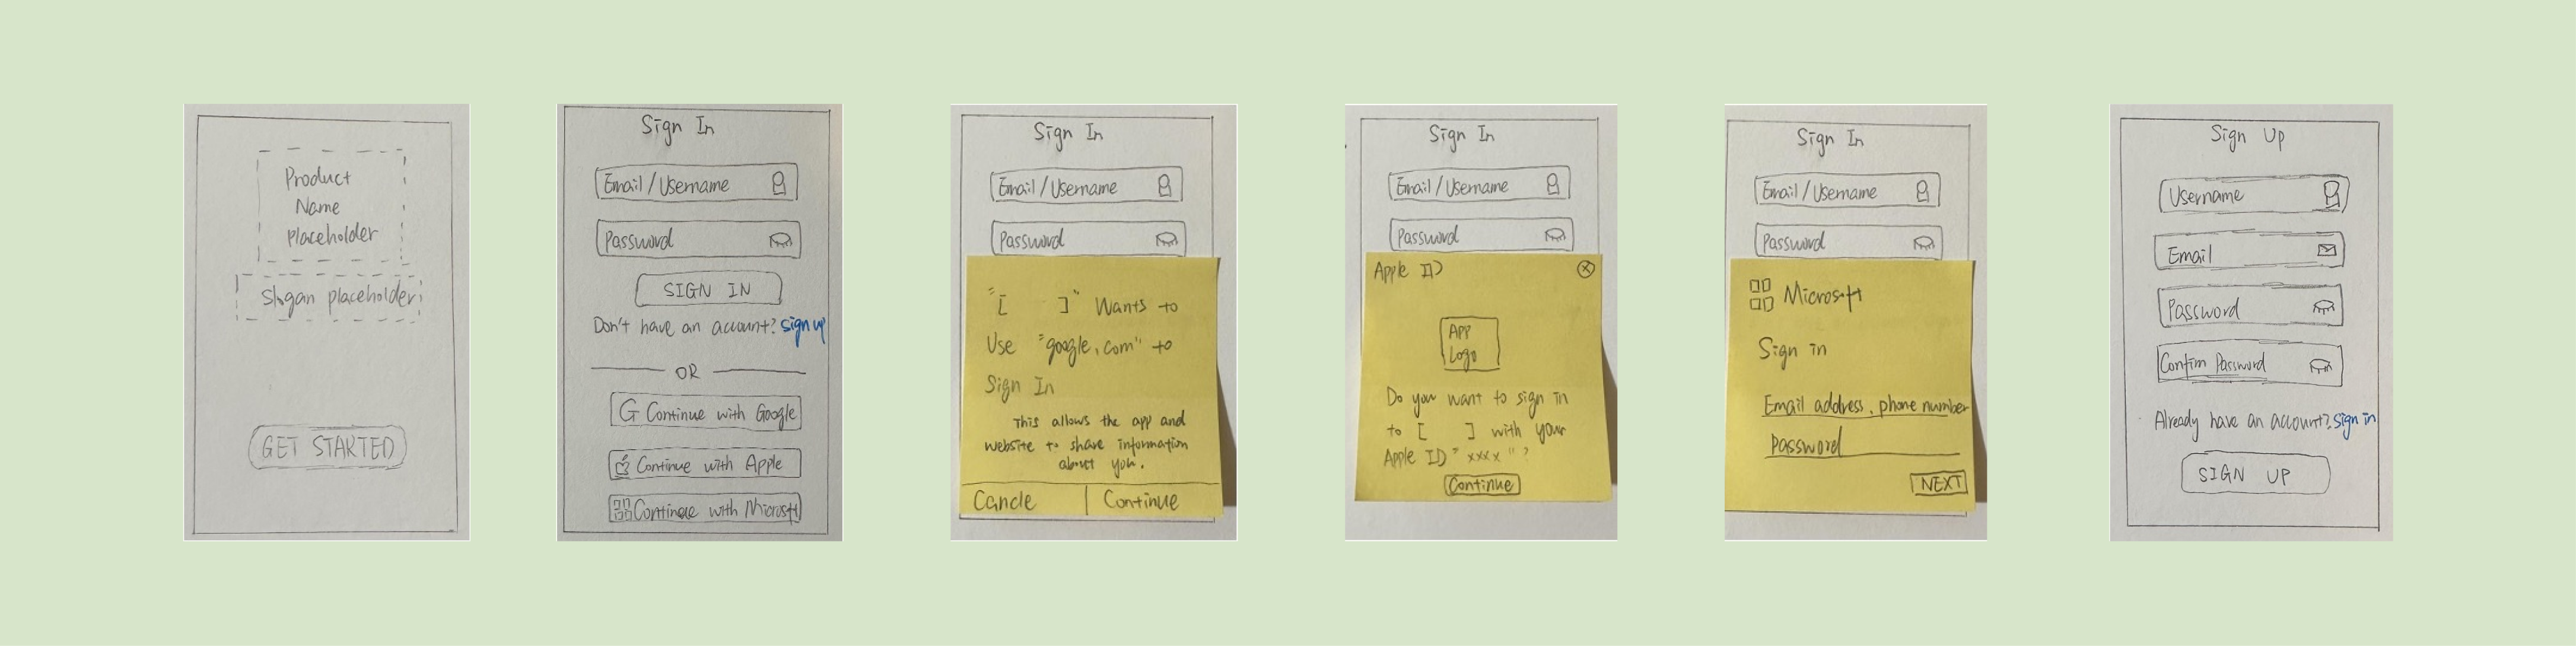 Product
Name
placeholder
Slogan placeholder
GET STARTED
Sign In
Email/Username
Password
SIGN IN
Don't have an account? sign up
OR
G Continue with Google
Continue with Apple
Continue with Microsoft
Sign In
Email/Username
Password
"[ ]" Wants to
Use "google.com" to
Sign In
This allows the app and
website to share information
about you.
Cancle
Continue
Sign In
Email/Username
Password
Apple ID
APP
Logo
Do you want to sign in
to [ ] with your
Apple ID "xxxx"?
Continue
Sign In
Email/Username
Password
Microsoft
Sign in
Email address, phone number
Password
NEXT
Sign Up
Username
Email
Password
Confim Password
Already have an account? Sign in
SIGN UP